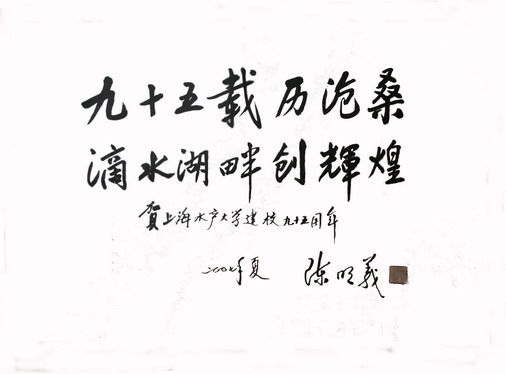 九十五载历沧桑
滴水湖畔创輝煌
贺上海水产大学建校九十五周年
二〇〇七年夏 陈明義